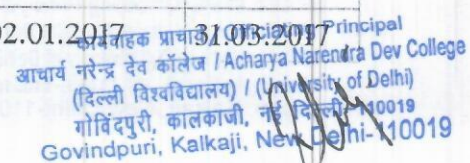 02.01.2017 31.03.2017
कार्यवाहक प्राचार्य / Officiating Principal
आचार्य नरेन्द्र देव कॉलेज / Acharya Narendra Dev College
(दिल्ली विश्वविद्यालय) / (University of Delhi)
गोविंदपुरी, कालकाजी, नई दिल्ली-110019
Govindpuri, Kalkaji, New Delhi-110019